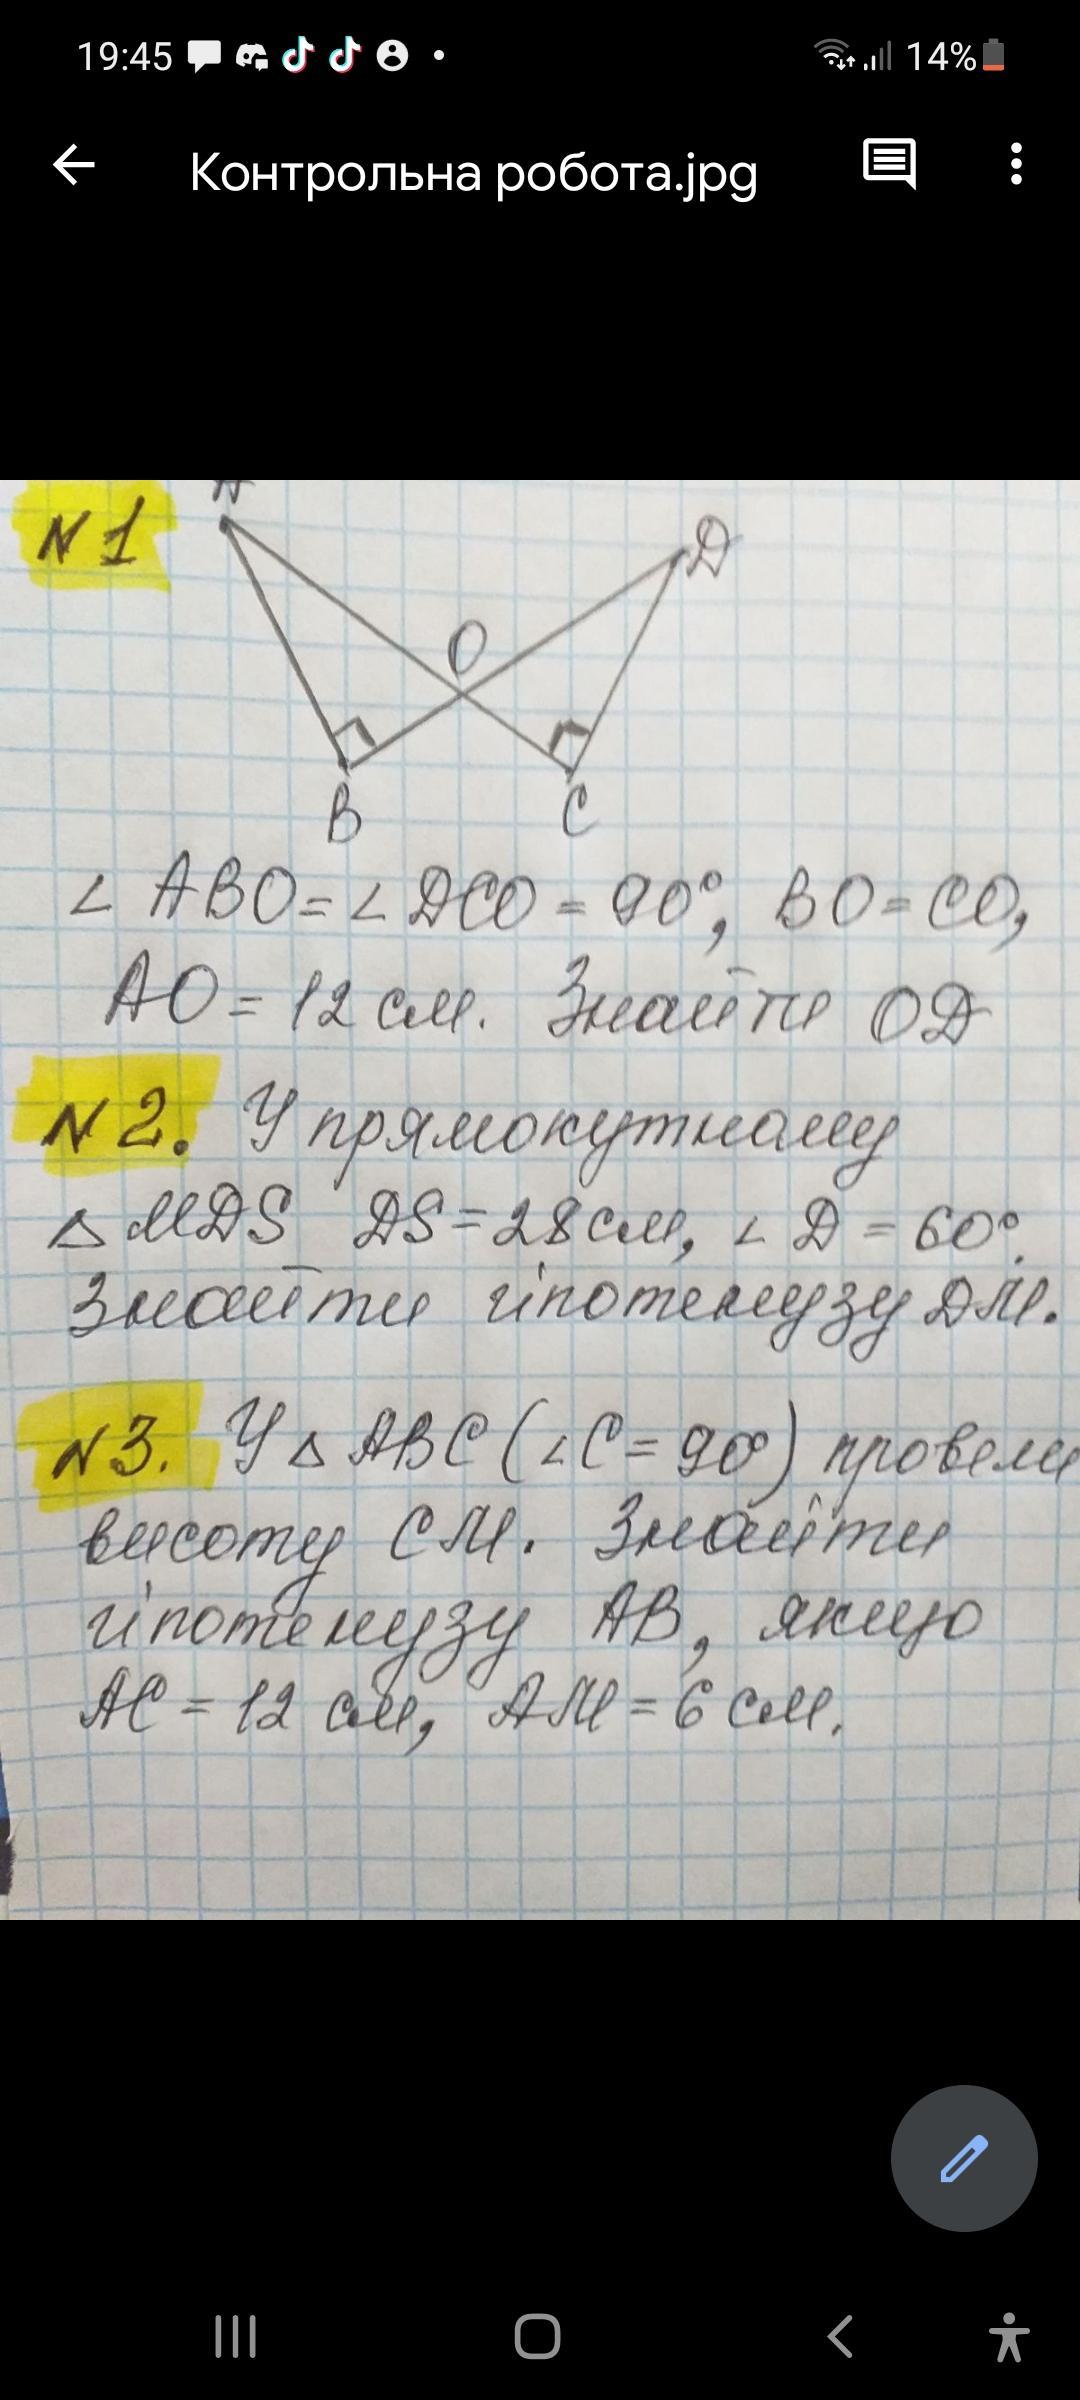 19:45 14%
Контрольна робота.jpg
A
N1
D
O
B
C
∠ ABO = ∠ DCO = 90°, BO = CO,
AO = 12 см. Знайти OD
N2. У прямокутному
△ MDS DS = 28 см, ∠ D = 60°.
Знайти гіпотенузу DM.
N3. У △ ABC (∠C = 90°) провели
висоту CM. Знайти
гіпотенузу AB, якщо
AC = 12 см, AM = 6 см.